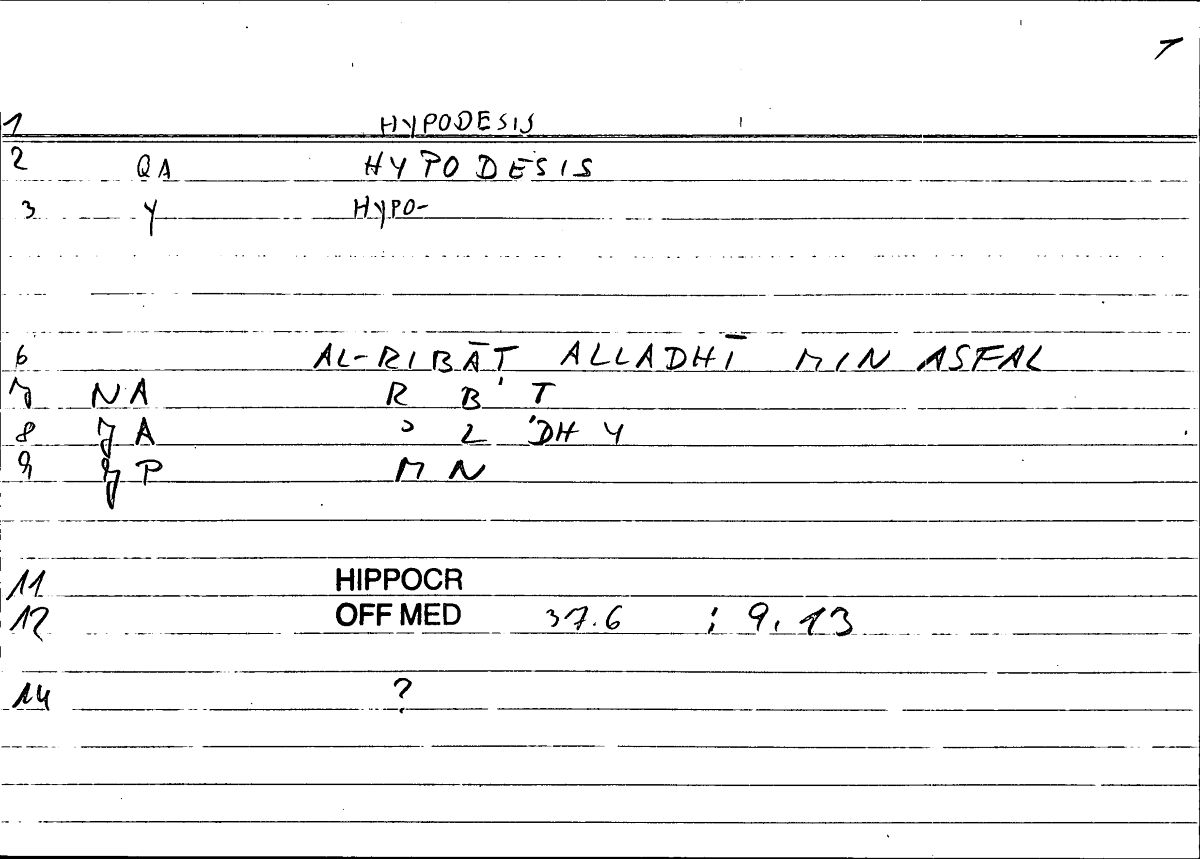 1
1 HYPODESIS
2 QA HYPODESIS
3 Y HYPO-
6 AL-RIBĀT ALLADHĪ MIN ASFAL
7 NA R B ' T
8 A 2 'DH Y
9 P M N
11 HIPPOCR
12 OFF MED 37.6 ; 9.13
14 ?